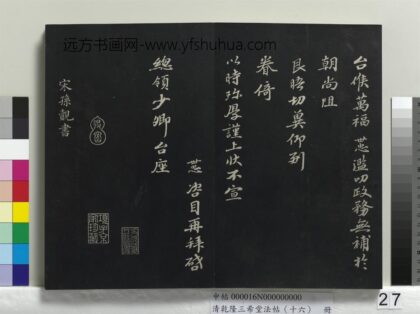 远方书画网-www.yfshuhua.com
台候萬福 蒞濫叨政務無補於
朝尚阻
良晤切冀仰副
眷倚
以時珍厚謹上狀不宣
蒞咨目再拜啓
總領少卿台座
宋孫覿書
申帖 000016N000000000
清乾隆三希堂法帖(十六) 冊
27